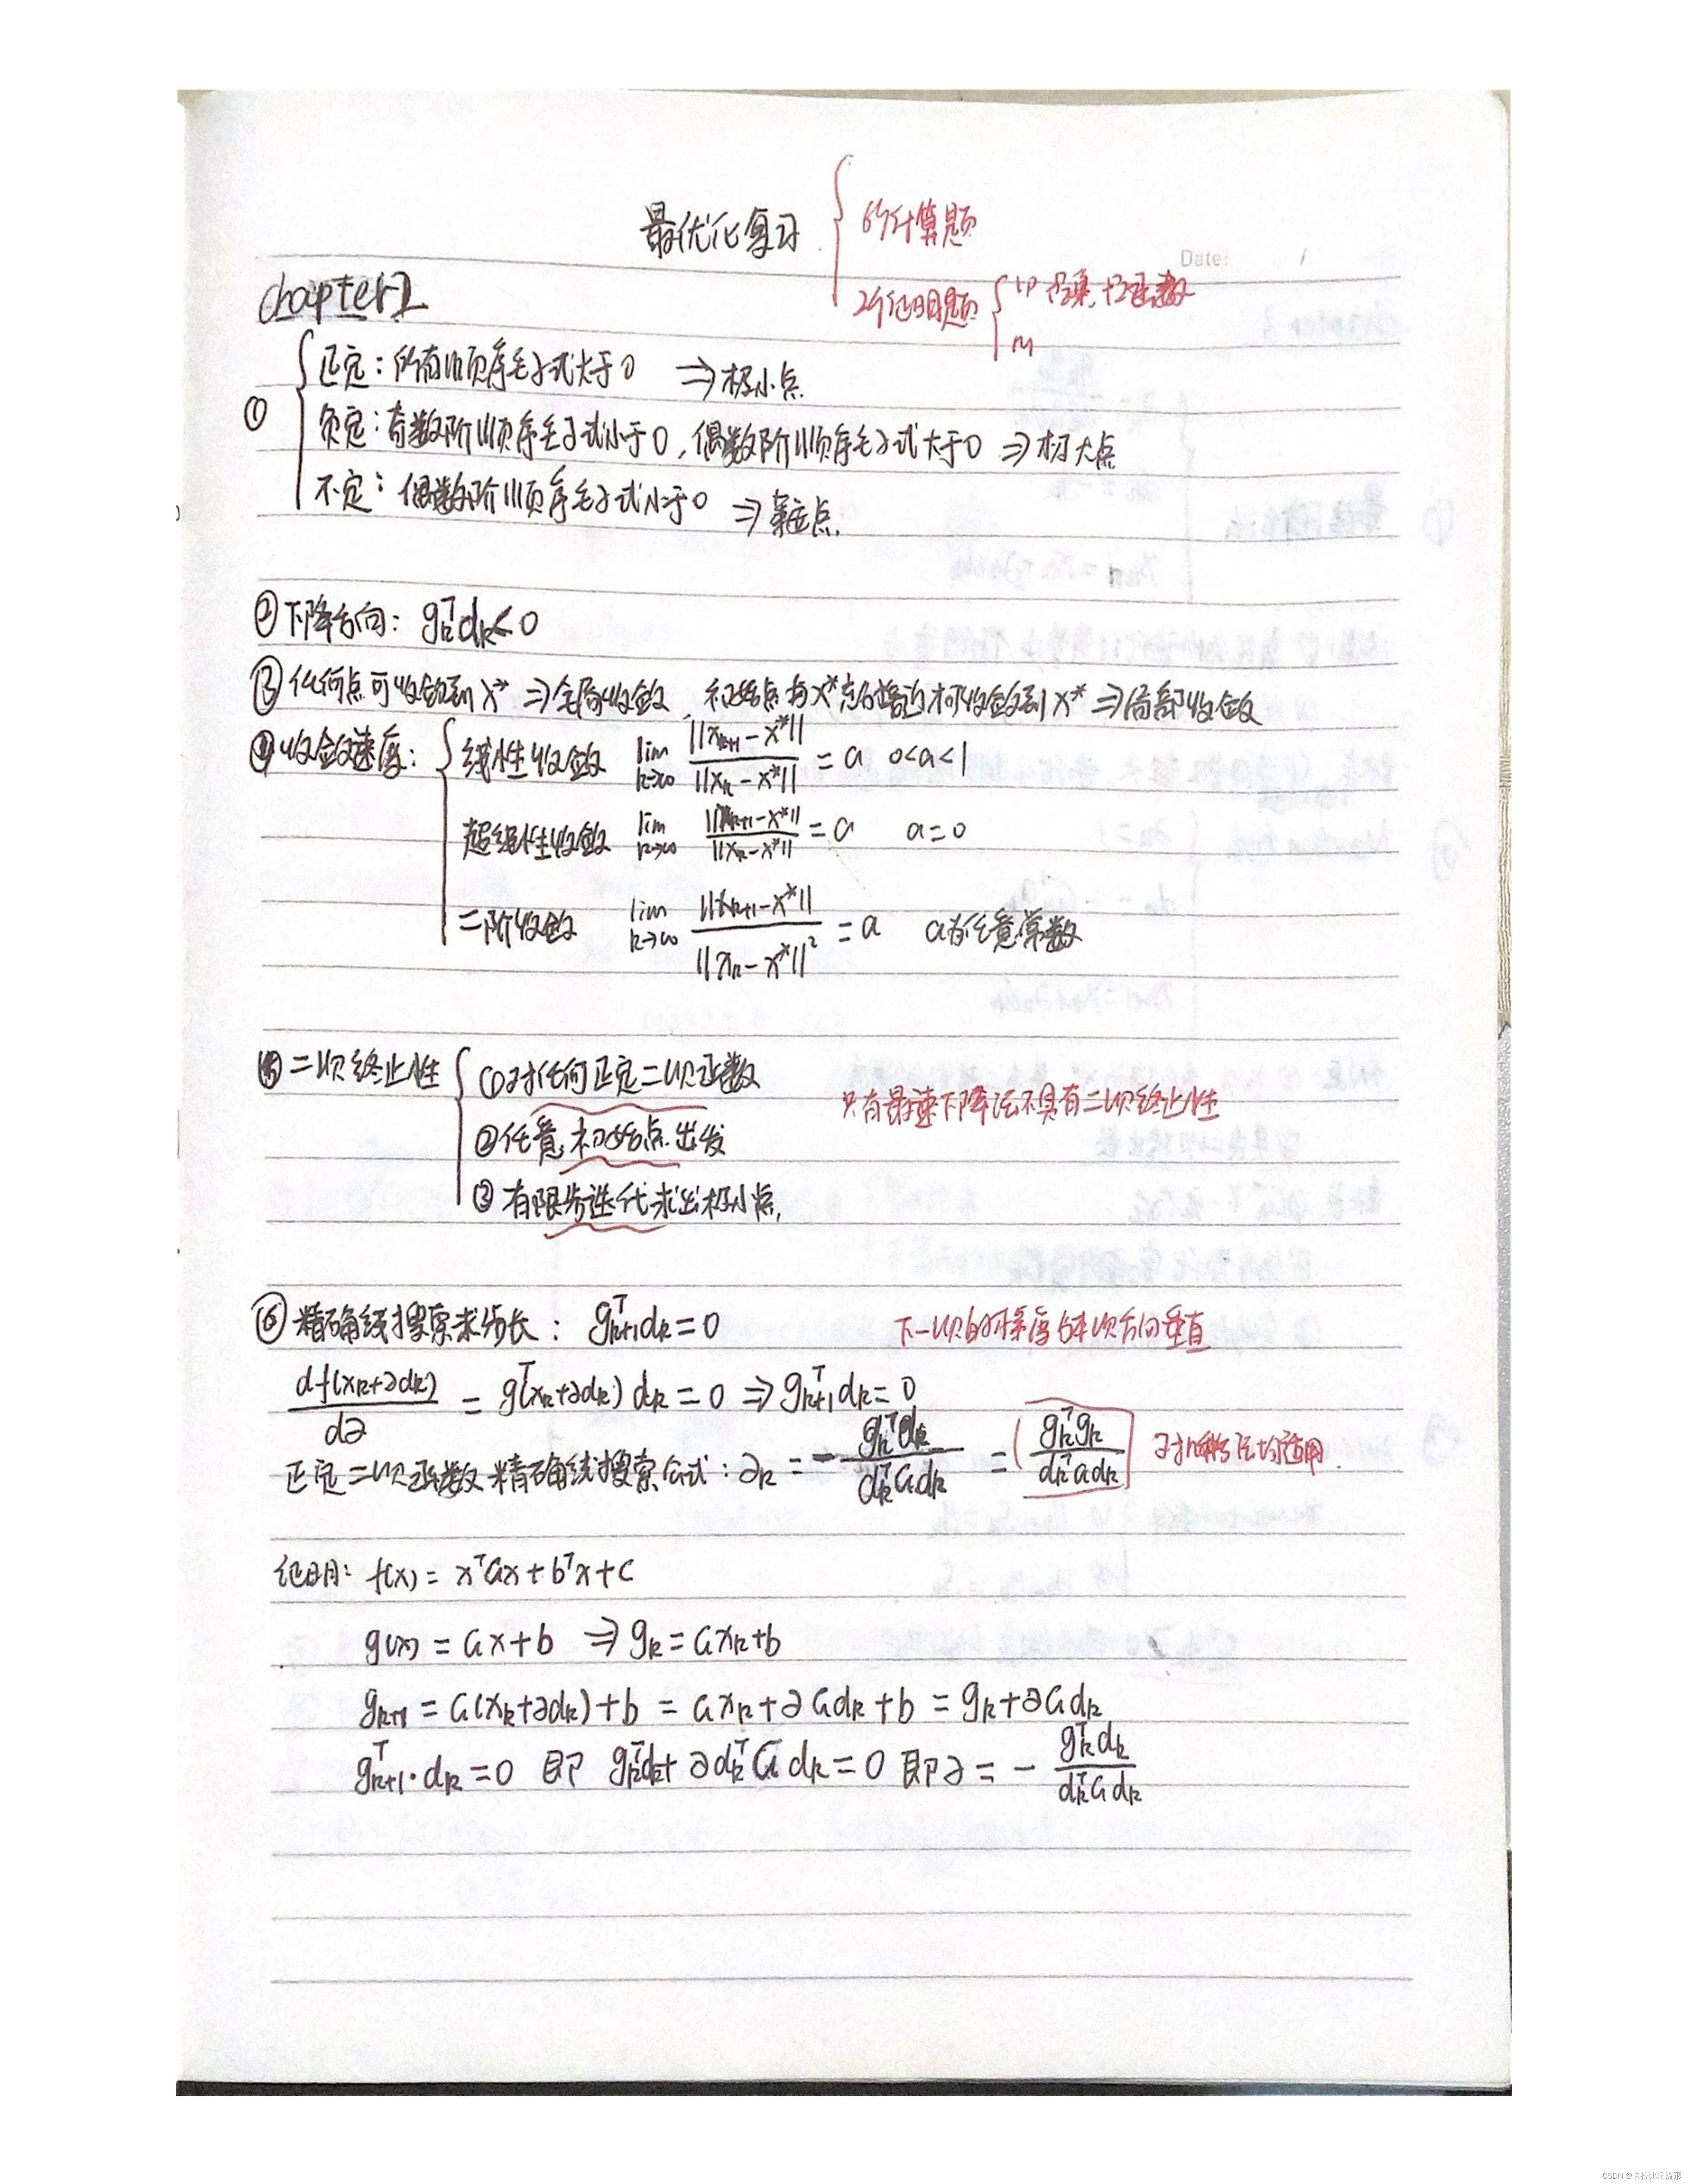 最优化复习
6个计算题
2个证明题
(1) 凸集、凸函数
(2)
Date: /
chapter1
① 正定：所有顺序主子式大于0 ⇒极小点
负定：奇数阶顺序主子式小于0，偶数阶顺序主子式大于0 ⇒极大点
不定：偶数阶顺序主子式小于0 ⇒鞍点.
② 下降方向： gₖᵀdₖ<0
③ 任何点可收敛到x* ⇒全局收敛，初始点与x*充分接近才可收敛到x* ⇒局部收敛
④ 收敛速度： 线性收敛 lim k→∞ ||xₖ₊₁-x*|| / ||xₖ-x*|| = a 0<a<1
超线性收敛 lim k→∞ ||xₖ₊₁-x*|| / ||xₖ-x*|| = a a=0
二阶收敛 lim k→∞ ||xₖ₊₁-x*|| / ||xₖ-x*||² = a a为任意常数
⑤ 二次终止性 ①对任何正定二次函数
只有最速下降法不具有二次终止性
②任意初始点出发
③有限步迭代求出极小点.
⑥ 精确线搜索求步长： gₖ₊₁ᵀdₖ=0 下一次的梯度与本次方向垂直
df(xₖ+∂dₖ) / d∂ = g(xₖ+∂dₖ)ᵀdₖ=0 ⇒ gₖ₊₁ᵀdₖ=0
正定二次函数精确线搜索公式：∂ₖ = - gₖᵀdₖ / dₖᵀGdₖ = gₖᵀgₖ / dₖᵀGdₖ 均适用.
证明： f(x) = xᵀGx+bᵀx+c
g(x) = Gx+b ⇒ gₖ=Gxₖ+b
gₖ₊₁ = G(xₖ+∂dₖ)+b = Gxₖ+∂Gdₖ+b = gₖ+∂Gdₖ
gₖ₊₁ᵀ·dₖ=0 即 gₖᵀdₖ+∂dₖᵀGdₖ=0 即∂ = - gₖᵀdₖ / dₖᵀGdₖ
CSDN @卡拉比丘流形